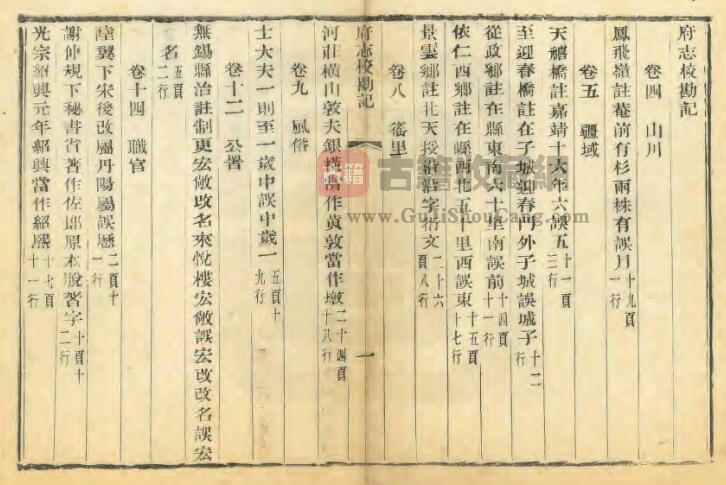 府志校勘記
卷四 山川
鳳飛嶺註菴前有杉兩株有誤月十九頁一行
卷五 疆域
天禧橋註嘉靖十六年六誤五十一頁三行
至迎春橋註在子城迎春門外子城誤城子十二行
從政鄉註在縣東南六十里南誤前十四頁十一行
依仁西鄉註在縣西北五十里西誤東十五頁十七行
景雲鄉註北天授沿沿字衍文二十六頁八行
卷八 徭里
府志校勘記 一
河莊橫山敦夫銀橫舊作黄敦當作墩二十四頁十八行
卷九 風俗
士大夫一則至一歲中誤中歲一五頁十九行
卷十二 公署
無錫縣治註制更宏敞改名來悅樓宏敞誤宏改改名誤宏
名五頁二行
卷十四 職官
陸翼下宋後改屬丹陽屬誤歷二頁十一行
謝仲規下秘書省著作佐郎原本脫著字十頁十二行
光宗紹興元年紹興當作紹熙十七頁十一行
古籍收藏網
www.GujiShouCang.com